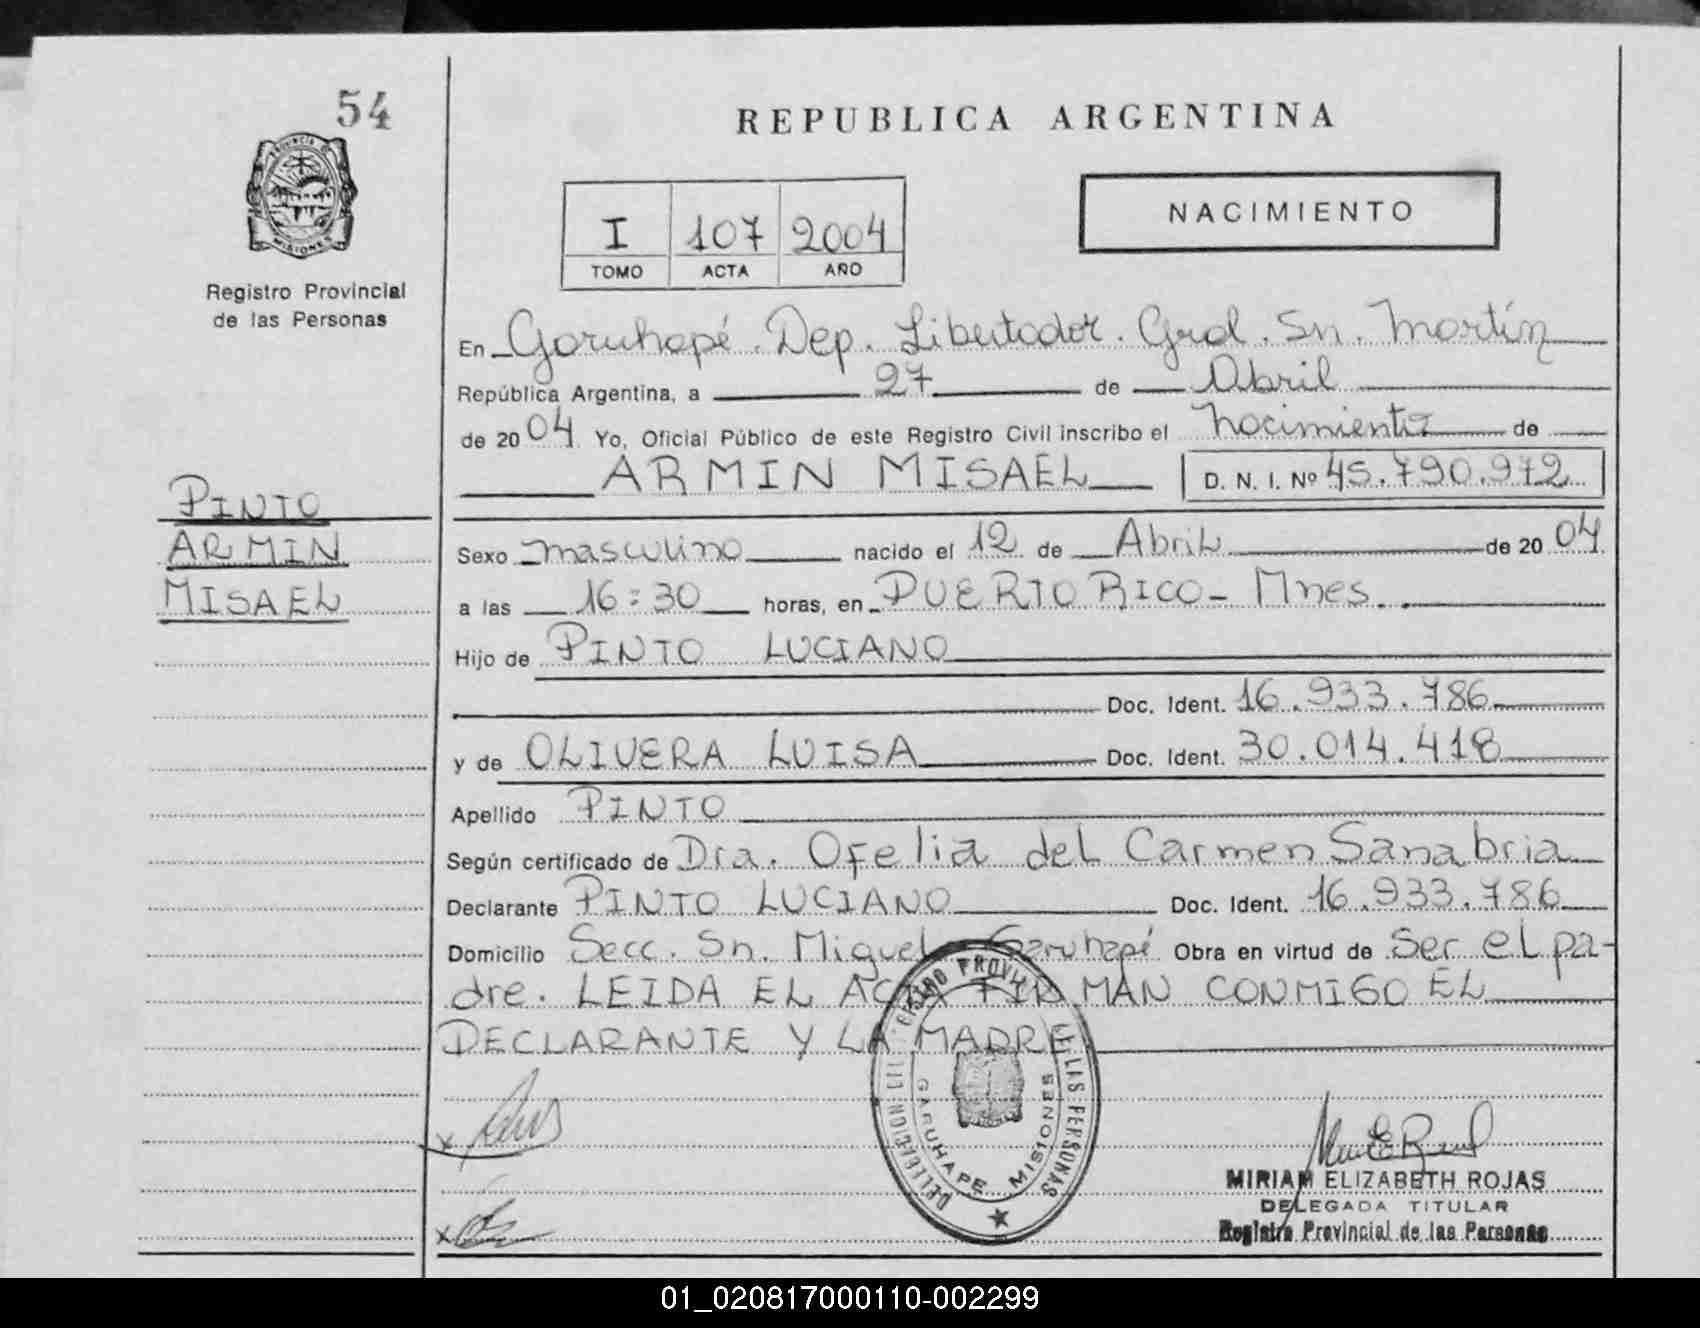 54
REPUBLICA ARGENTINA
PROVINCIA DE
MISIONES
I 107 2004
TOMO ACTA AÑO
NACIMIENTO
Registro Provincial
de las Personas
En Garuhapé. Dep. Libertador. Gral. Sn. Martín
República Argentina, a 27 de Abril
de 2004 Yo, Oficial Público de este Registro Civil inscribo el nacimiento de
ARMIN MISAEL D. N. I. Nº 45.790.972
PINTO
ARMIN
MISAEL
Sexo masculino nacido el 12 de Abril de 2004
a las 16:30 horas, en PUERTO RICO - Mnes.
Hijo de PINTO LUCIANO
Doc. Ident. 16.933.786
y de OLIVERA LUISA Doc. Ident. 30.014.418
Apellido PINTO
Según certificado de Dra. Ofelia del Carmen Sanabria
Declarante PINTO LUCIANO Doc. Ident. 16.933.786
Domicilio Secc. Sn. Miguel - Garuhapé Obra en virtud de Ser el pa-
dre. LEIDA EL ACTA FIRMAN CONMIGO EL
DECLARANTE Y LA MADRE
DELEGACION DEL REGISTRO PROVINCIAL DE LAS PERSONAS
GARUHAPE MISIONES
MIRIAM ELIZABETH ROJAS
DELEGADA TITULAR
Registro Provincial de las Personas
01_020817000110-002299